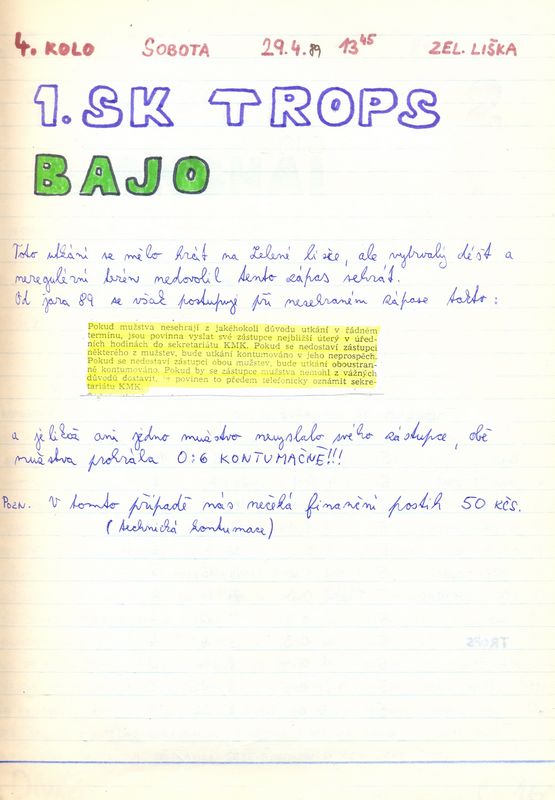 4. KOLO SOBOTA 29.4.89 13⁴⁵ ZEL. LIŠKA
1. SK TROPS
BAJO
Toto utkání se mělo hrát na Zelené lišce, ale vytrvalý déšť a
neregulérní terén nedovolil tento zápas sehrát.
Od jara 89 se však postupuje při nesehraném zápase takto:
Pokud mužstva nesehrají z jakéhokoli důvodu utkání v řádném
termínu, jsou povinna vyslat své zástupce nejbližší úterý v úřed-
ních hodinách do sekretariátu KMK. Pokud se nedostaví zástupci
některého z mužstev, bude utkání kontumováno v jeho neprospěch.
Pokud se nedostaví zástupci obou mužstev, bude utkání oboustran-
ně kontumováno. Pokud by se zástupce mužstva nemohl z vážných
důvodů dostavit, je povinen to předem telefonicky oznámit sekre-
tariátu KMK.
a jelikož ani jedno mužstvo nevyslalo svého zástupce, obě
mužstva prohrála 0:6 KONTUMAČNĚ!!!
POZN. V tomto případě nás nečeká finanční postih 50 KČS.
(technická kontumace)
TROPS